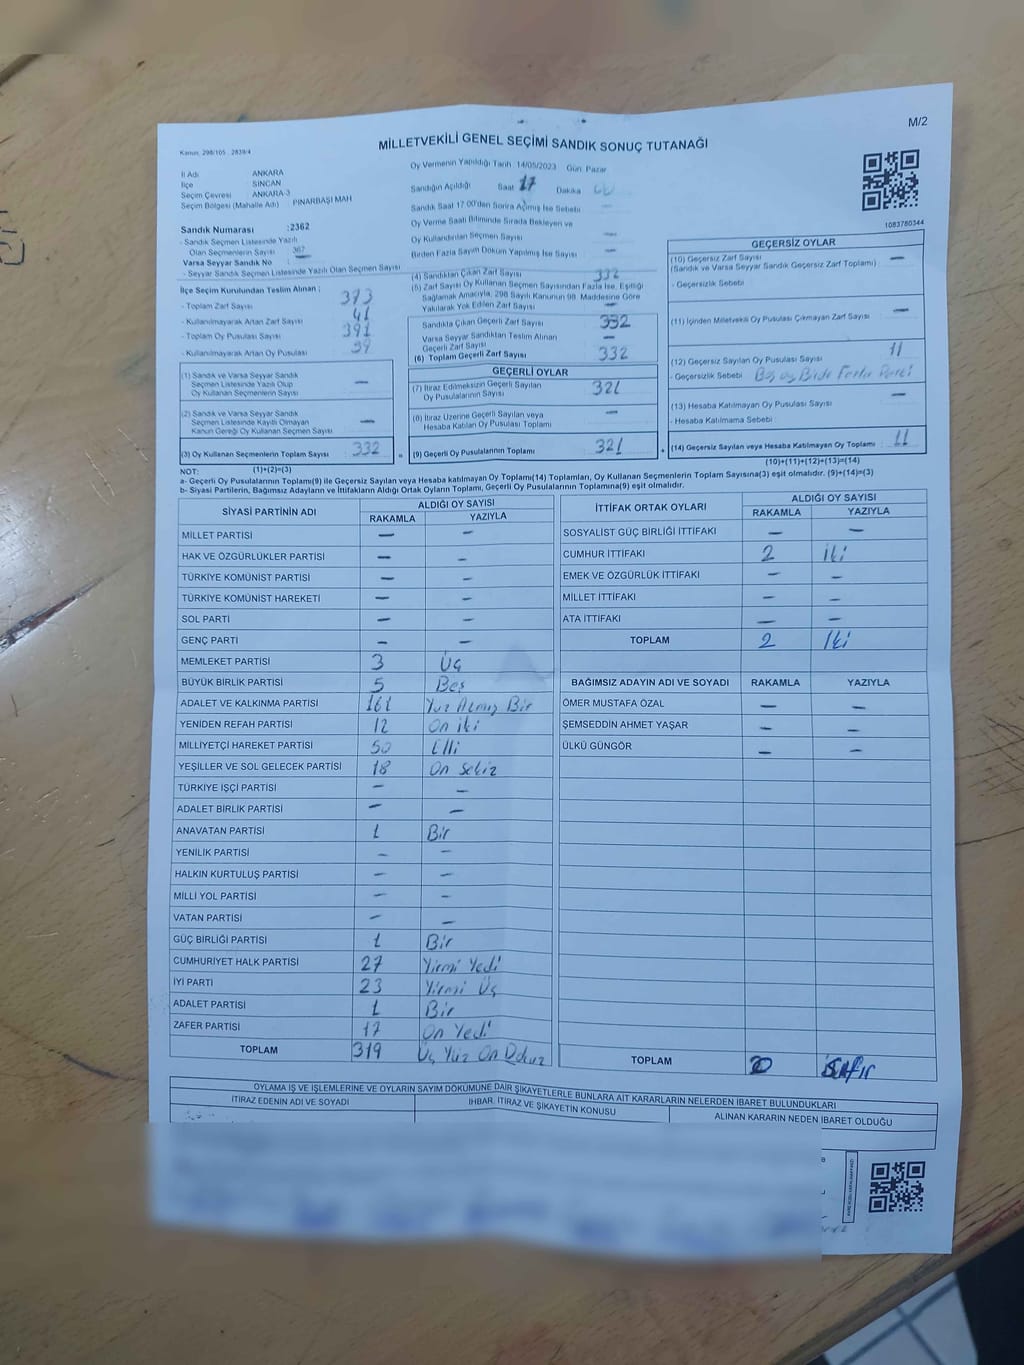 M/2
MİLLETVEKİLİ GENEL SEÇİMİ SANDIK SONUÇ TUTANAĞI
Kanun; 298/105 , 2839/4
İl Adı ANKARA
İlçe SİNCAN
Seçim Çevresi ANKARA-3
Seçim Bölgesi (Mahalle Adı) : PINARBAŞI MAH
Sandık Numarası :2362
- Sandık Seçmen Listesinde Yazılı
Olan Seçmenlerin Sayısı : 367
Varsa Seyyar Sandık No : —
- Seyyar Sandık Seçmen Listesinde Yazılı Olan Seçmen Sayısı
İlçe Seçim Kurulundan Teslim Alınan ;
- Toplam Zarf Sayısı 373
- Kullanılmayarak Artan Zarf Sayısı 41
- Toplam Oy Pusulası Sayısı 391
- Kullanılmayarak Artan Oy Pusulası 59
(1) Sandık ve Varsa Seyyar Sandık
Seçmen Listesinde Yazılı Olup
Oy Kullanan Seçmenlerin Sayısı —
(2) Sandık ve Varsa Seyyar Sandık
Seçmen Listesinde Kayıtlı Olmayan
Kanun Gereği Oy Kullanan Seçmen Sayısı —
(3) Oy Kullanan Seçmenlerin Toplam Sayısı 332
Oy Vermenin Yapıldığı Tarih :14/05/2023 Gün: Pazar
Sandığın Açıldığı Saat 17 Dakika
Sandık Saat 17.00'den Sonra Açılmış İse Sebebi —
Oy Verme Saati Bitiminde Sırada Bekleyen ve
Oy Kullandırılan Seçmen Sayısı —
Birden Fazla Sayım Döküm Yapılmış İse Sayısı —
(4) Sandıktan Çıkan Zarf Sayısı 332
(5) Zarf Sayısı Oy Kullanan Seçmen Sayısından Fazla İse, Eşitliği
Sağlamak Amacıyla, 298 Sayılı Kanunun 98. Maddesine Göre
Yakılarak Yok Edilen Zarf Sayısı —
Sandıkta Çıkan Geçerli Zarf Sayısı 332
Varsa Seyyar Sandıktan Teslim Alınan
Geçerli Zarf Sayısı —
(6) Toplam Geçerli Zarf Sayısı 332
GEÇERLİ OYLAR
(7) İtiraz Edilmeksizin Geçerli Sayılan
Oy Pusulalarının Sayısı 321
(8) İtiraz Üzerine Geçerli Sayılan veya
Hesaba Katılan Oy Pusulası Toplamı —
= (9) Geçerli Oy Pusulalarının Toplamı 321
1083780344
GEÇERSİZ OYLAR
(10) Geçersiz Zarf Sayısı —
(Sandık ve Varsa Seyyar Sandık Geçersiz Zarf Toplamı)
- Geçersizlik Sebebi
(11) İçinden Milletvekili Oy Pusulası Çıkmayan Zarf Sayısı —
(12) Geçersiz Sayılan Oy Pusulası Sayısı 11
- Geçersizlik Sebebi Boş oy Birde Fazla Parti
(13) Hesaba Katılmayan Oy Pusulası Sayısı —
- Hesaba Katılmama Sebebi
+ (14) Geçersiz Sayılan veya Hesaba Katılmayan Oy Toplamı 11
NOT: (1)+(2)=(3) (10)+(11)+(12)+(13)=(14)
a- Geçerli Oy Pusulalarının Toplamı(9) ile Geçersiz Sayılan veya Hesaba katılmayan Oy Toplamı(14) Toplamları, Oy Kullanan Seçmenlerin Toplam Sayısına(3) eşit olmalıdır. (9)+(14)=(3)
b- Siyasi Partilerin, Bağımsız Adayların ve İttifakların Aldığı Ortak Oyların Toplamı, Geçerli Oy Pusulalarının Toplamına(9) eşit olmalıdır.
SİYASİ PARTİNİN ADI ALDIĞI OY SAYISI
RAKAMLA YAZIYLA
MİLLET PARTİSİ — —
HAK VE ÖZGÜRLÜKLER PARTİSİ — —
TÜRKİYE KOMÜNİST PARTİSİ — —
TÜRKİYE KOMÜNİST HAREKETİ — —
SOL PARTİ — —
GENÇ PARTİ — —
MEMLEKET PARTİSİ 3 Üç
BÜYÜK BİRLİK PARTİSİ 5 Beş
ADALET VE KALKINMA PARTİSİ 161 Yüz Atmış Bir
YENİDEN REFAH PARTİSİ 12 On iki
MİLLİYETÇİ HAREKET PARTİSİ 50 Elli
YEŞİLLER VE SOL GELECEK PARTİSİ 18 On Sekiz
TÜRKİYE İŞÇİ PARTİSİ — —
ADALET BİRLİK PARTİSİ — —
ANAVATAN PARTİSİ 1 Bir
YENİLİK PARTİSİ — —
HALKIN KURTULUŞ PARTİSİ — —
MİLLİ YOL PARTİSİ — —
VATAN PARTİSİ — —
GÜÇ BİRLİĞİ PARTİSİ 1 Bir
CUMHURİYET HALK PARTİSİ 27 Yirmi Yedi
İYİ PARTİ 23 Yirmi Üç
ADALET PARTİSİ 1 Bir
ZAFER PARTİSİ 17 On Yedi
TOPLAM 319 Üç Yüz On Dokuz
İTTİFAK ORTAK OYLARI ALDIĞI OY SAYISI
RAKAMLA YAZIYLA
SOSYALİST GÜÇ BİRLİĞİ İTTİFAKI — —
CUMHUR İTTİFAKI 2 İki
EMEK VE ÖZGÜRLÜK İTTİFAKI — —
MİLLET İTTİFAKI — —
ATA İTTİFAKI — —
TOPLAM 2 İki
BAĞIMSIZ ADAYIN ADI VE SOYADI RAKAMLA YAZIYLA
ÖMER MUSTAFA ÖZAL — —
ŞEMSEDDİN AHMET YAŞAR — —
ÜLKÜ GÜNGÖR — —
TOPLAM 0 Sıfır
OYLAMA İŞ VE İŞLEMLERİNE VE OYLARIN SAYIM DÖKÜMÜNE DAİR ŞİKAYETLERLE BUNLARA AİT KARARLARIN NELERDEN İBARET BULUNDUKLARI
İTİRAZ EDENİN ADI VE SOYADI İHBAR, İTİRAZ VE ŞİKAYETİN KONUSU ALINAN KARARIN NEDEN İBARET OLDUĞU